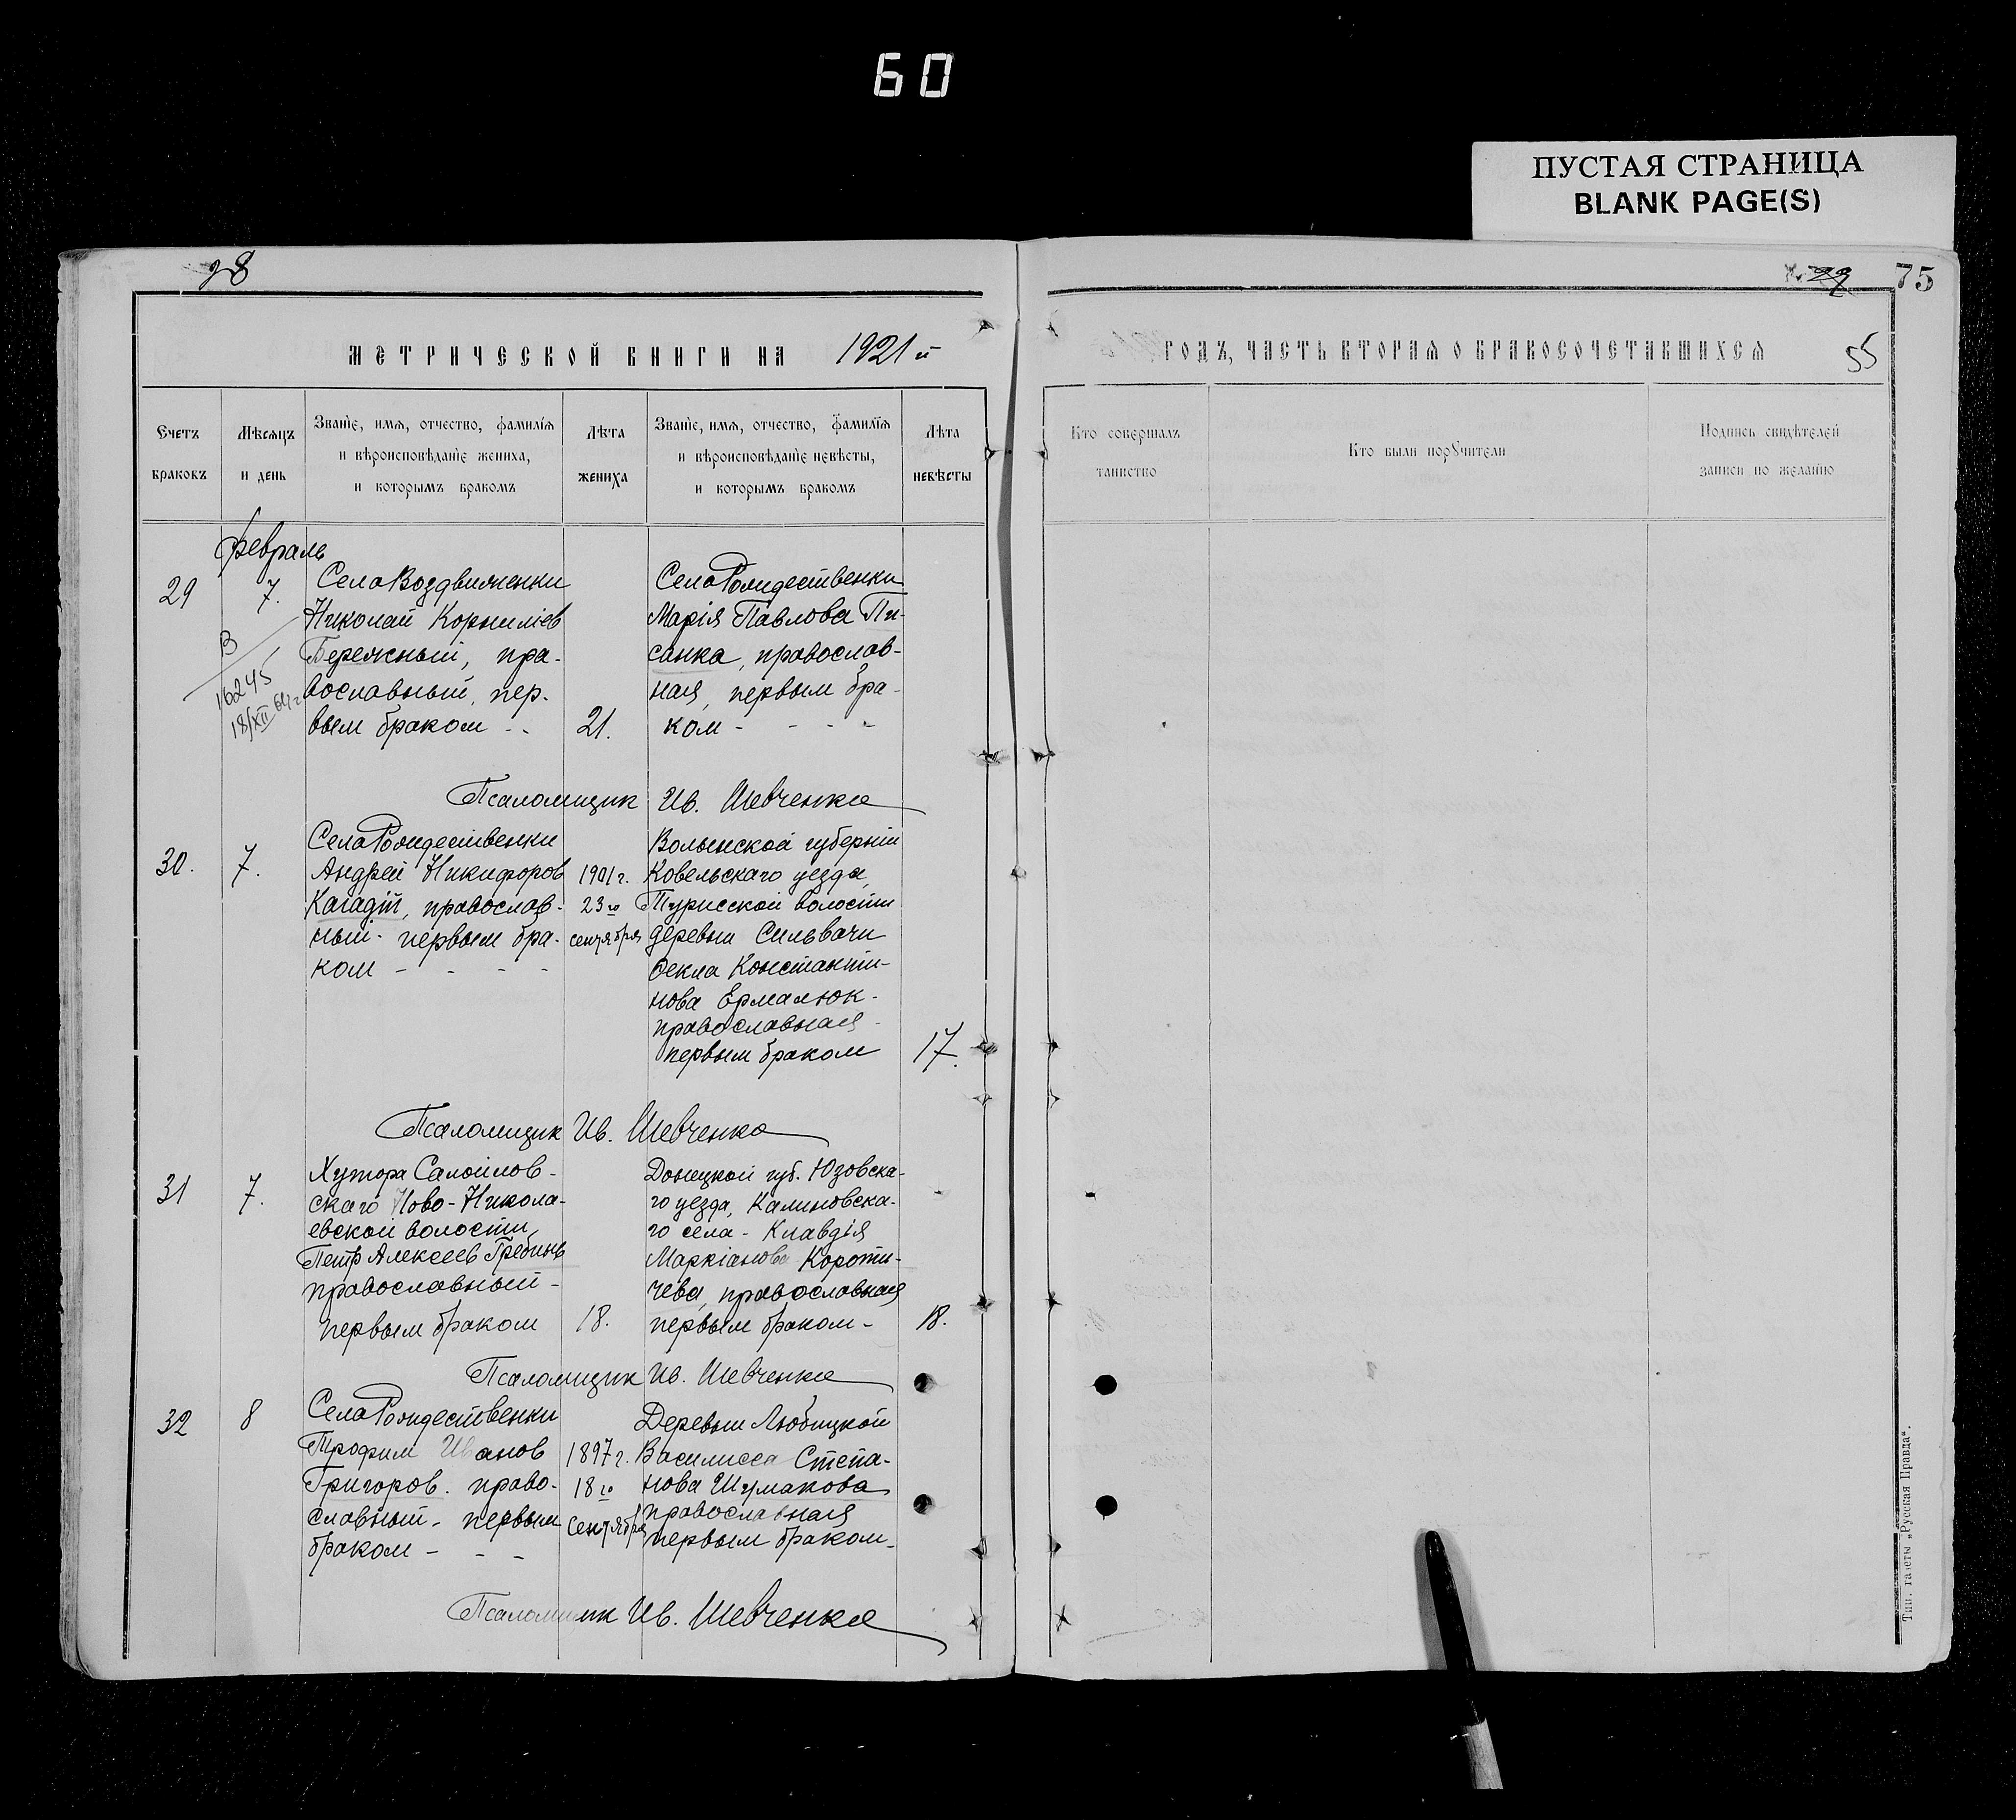 60
ПУСТАЯ СТРАНИЦА
BLANK PAGE(S)
28
75
55
МЕТРИЧЕСКОЙ КНИГИ НА 1921 й
ГОДЪ, ЧАСТЬ ВТОРАЯ О БРАКОСОЧЕТАВШИХСЯ
Счетъ
браковъ
Мѣсяцъ
и день
Званіе, имя, отчество, фамилія
и вѣроисповѣданіе жениха,
и которымъ бракомъ
Лѣта
жениха
Званіе, имя, отчество, фамилія
и вѣроисповѣданіе невѣсты,
и которымъ бракомъ
Лѣта
невѣсты
Кто совершалъ
таинство
Кто были поручители
Подпись свидѣтелей
записи по желанію
февраль
29
7.
В
16245
18/XII 64 г.
Села Воздвиженки
Николай Корниліев
Бережный, пра-
вославный, пер-
вым браком - -
21.
Села Рождественки
Марія Павлова Пи-
санка, православ-
ная, первым бра-
ком - - - -
Псаломщик Ив. Шевченко
30.
7.
Села Рождественки
Андрей Никифоров
Кагадій, православ-
ный - первым бра-
ком - - - -
1901 г.
23го
сентября
Волынской губерніи
Ковельскаго уезда,
Турисской волости
деревни Сильвачи
Фекла Константи-
нова Ермалюк -
православная -
первым браком
17.
Псаломщик Ив. Шевченко
31
7.
Хутора Самойлов-
скаго Ново-Никола-
евской волости,
Петр Алексеев Гребинь
православный -
первым браком
18.
Донецкой губ. Юзовска-
го уезда, Калиновска-
го села - Клавдія
Маркіанова Короти-
чева, православная
первым браком -
18.
Псаломщик Ив. Шевченко
32
8
Села Рождественки
Трофим Иванов
Григоров. право-
славный - первым
браком - - -
1897 г.
18го
сентября
Деревни Любицкой
Василисса Степа-
нова Шумакова
православная
первым браком -
Псаломщик Ив. Шевченко
Тип. газеты „Русская Правда“.